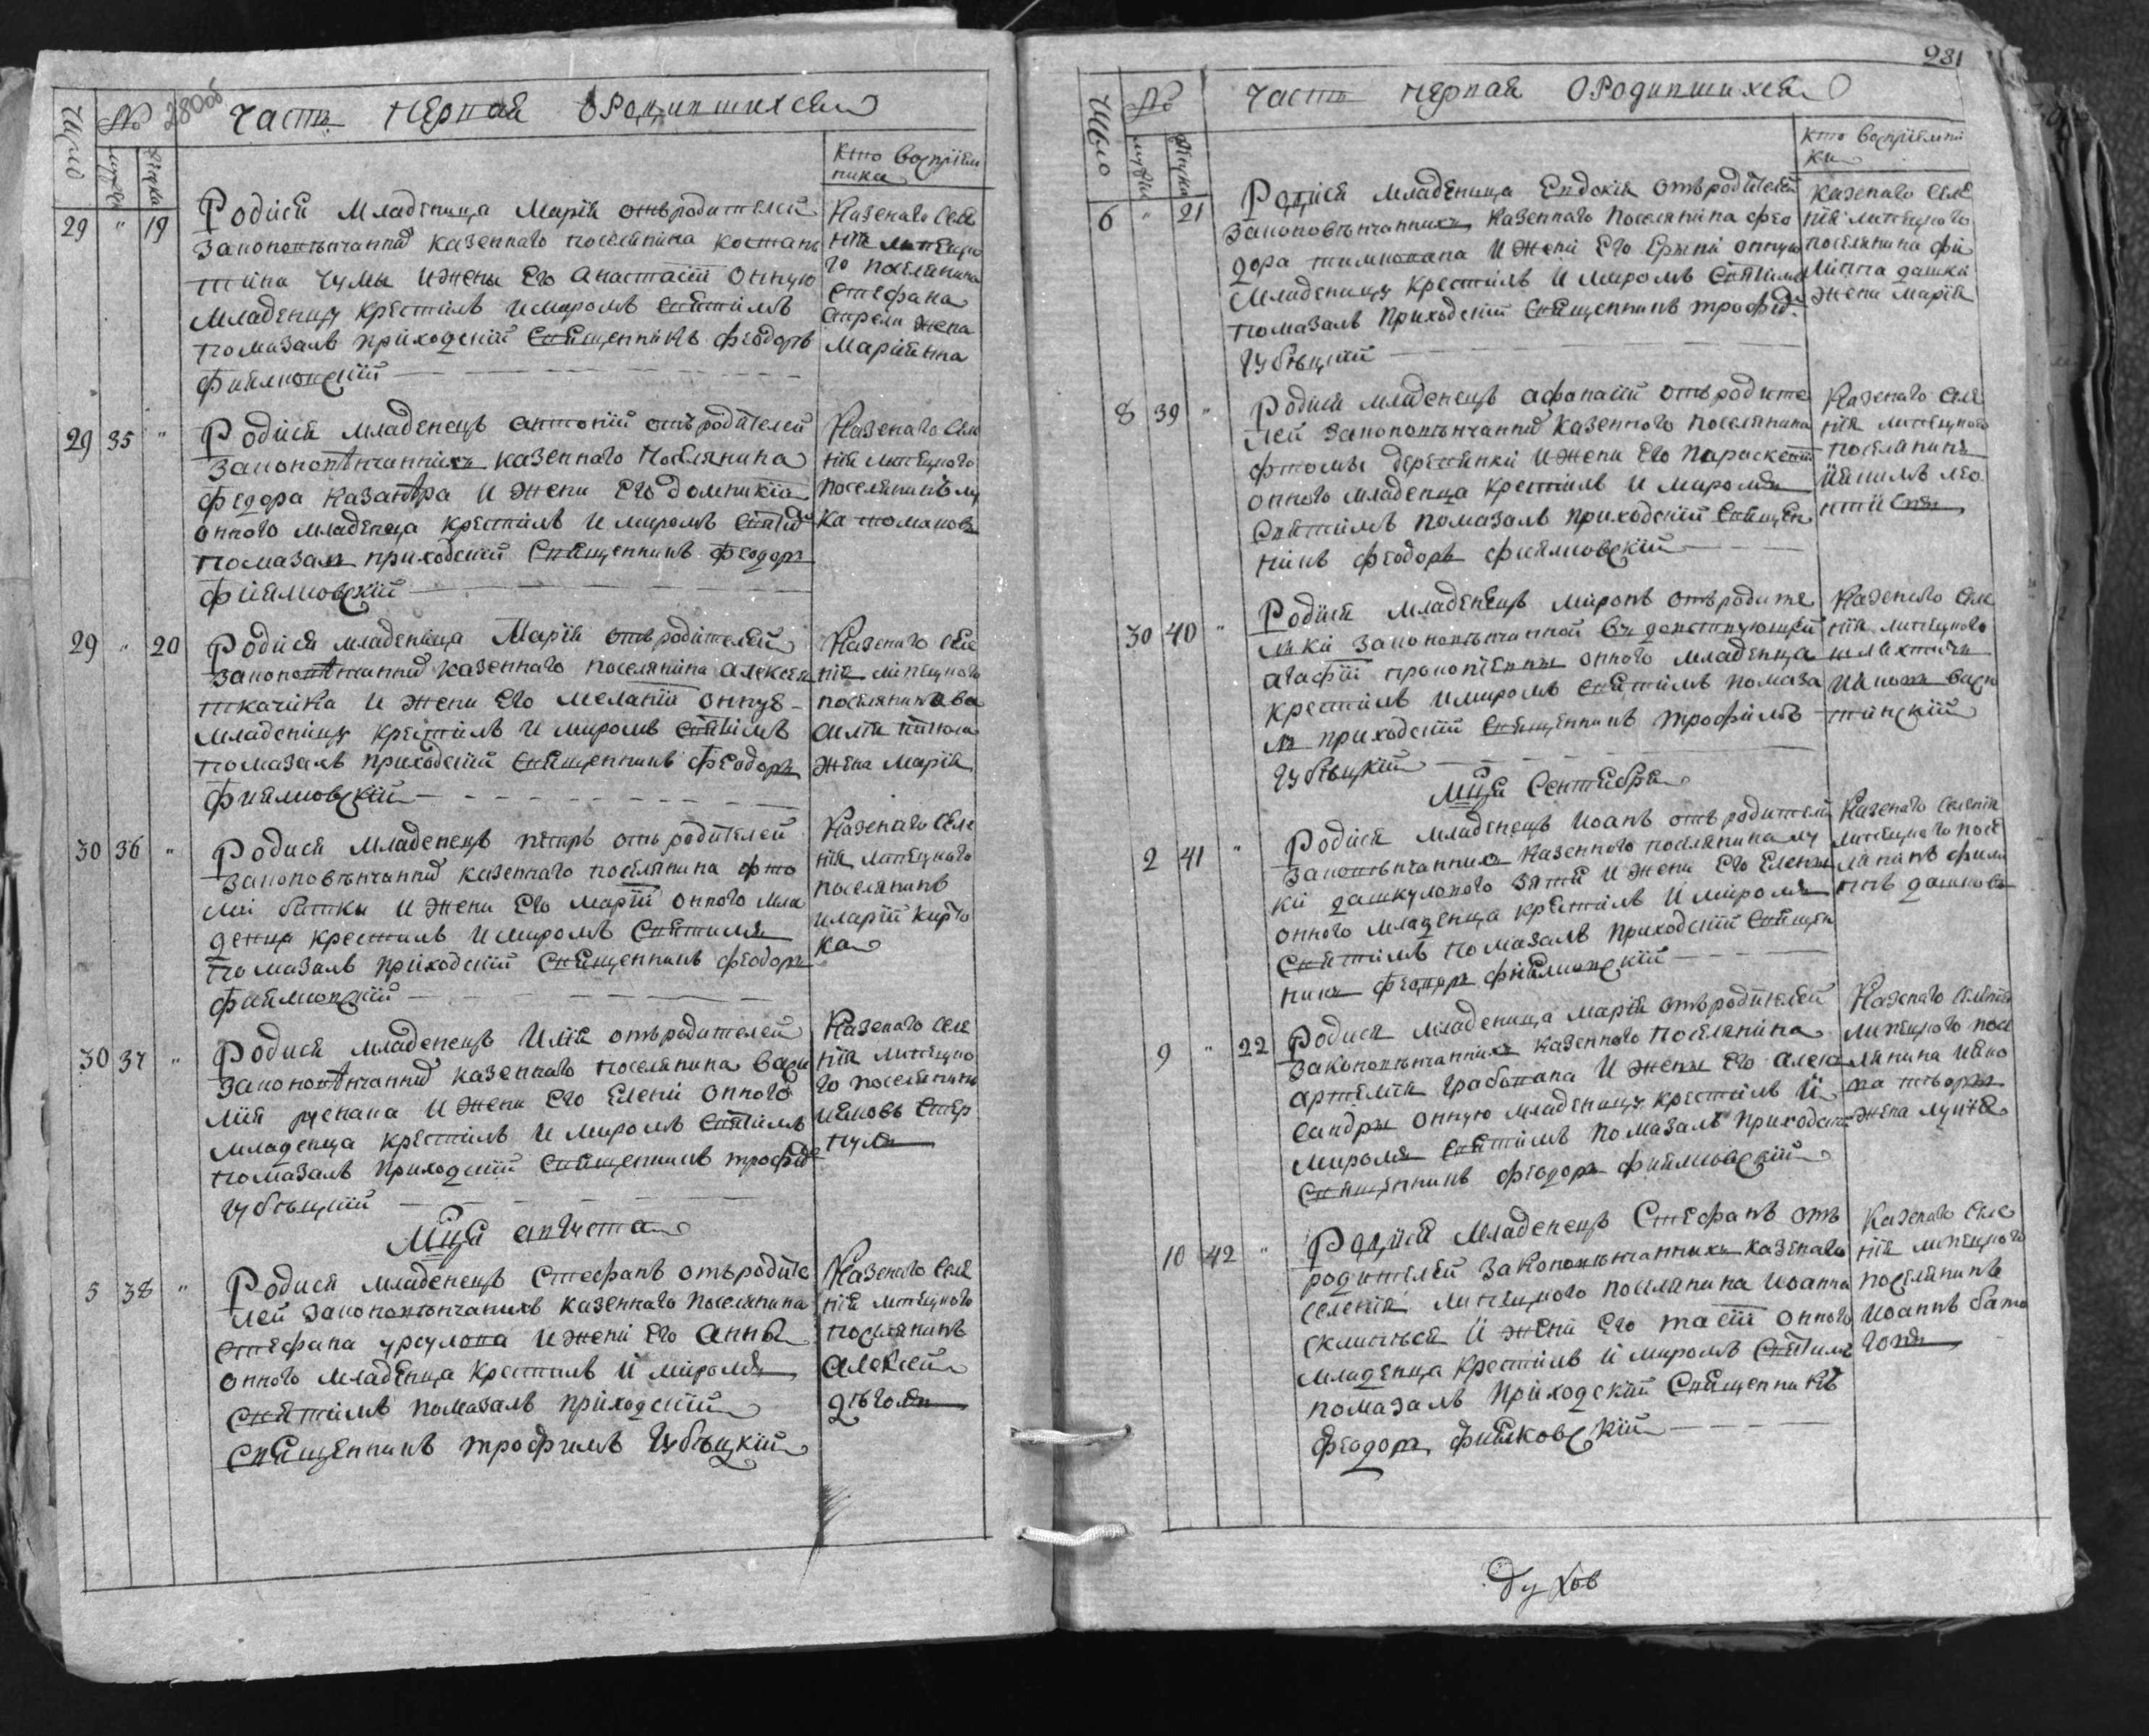 280об
Число
№
мужеска
женска
Часть первая о Родившихся
Кто восприем
ники
29 " 19
Родися Младеница Марія отъ родителей
законовѣнчанныхъ казеннаго поселянина констанъ
тина чумы и жены его Анастасіи онную
Младеницу крестилъ и миромъ святымъ
помазалъ приходскій Священникъ Феодоръ
Фиялковскій
Казенаго Селе
нія липецка
го поселянина
Стефана
Апрели жена
Марія
29 35 "
Родися Младенецъ Антоній отъ родителей
законовѣнчанныхъ казеннаго поселянина
Федора Казантра и жени его домникіи
онного младенца крестилъ и миромъ святымъ
помазалъ приходскій Священникъ Феодоръ
Фиялковскій
Казенаго Селе
нія липецкого
поселянинъ лу
ка томановъ
29 " 20
Родися младеница Марія отъ родителей
законовѣнчанныхъ казеннаго поселянина алексея
ткачика и жени его Меланіи онную
младеницу крестилъ и миромъ святымъ
помазалъ приходскій Священникъ Феодоръ
Фиялковскій
Казенаго Селе
нія липецкого
поселянина ва
силія
жена Марія
30 36 "
Родися Младенецъ петръ отъ родителей
законовѣнчанныхъ казеннаго поселянина фто
мы батки и жени его Маріи онного мла
денца крестилъ и миромъ Святымъ
помазалъ приходскій Священникъ Феодоръ
Фиялковскій
Казенаго Селе
нія липецкаго
поселянинъ
иларій кирго
ка
30 37 "
Родися младенецъ Илія отъ родителей
законовѣнчанныхъ казеннаго поселянина васи
лія руснака и жени его Елени онного
младенца крестилъ и миромъ Святымъ
помазалъ приходскій Священникъ трофимъ
Губѣцкій
Казенаго Селе
нія липецка
го поселянинъ
ияковъ Стер
пулъ
Мца августа
5 38 "
Родися младенецъ Стефанъ отъ родите
лей законовѣнчаныхъ казеннаго поселянина
стефана урсулова и жени его Анны
онного младенца крестилъ и миромъ
Святымъ помазалъ приходскій
Священникъ трофимъ Губѣцкій
Казенаго Селе
нія липецкого
поселянинъ
Алексей
дѣголъ
231
Число
№
мужеска
женска
Часть первая о Родившихся
Кто воспріемни
ки
6 " 21
Родися младеница Евдокія отъ родителей
законовѣнчанныхъ казеннаго поселянина фео
дора тимковапа и жени его Ерини онную
Младеницу крестилъ и миромъ святымъ
помазалъ приходскій Священникъ трофимъ
Губѣцкій
Казенаго Селе
нія липецкого
поселянина фи
липпа дашка
жена Марія
8 39 "
Родися младенецъ афанасій отъ родите
лей законовѣнчанныхъ казенного поселянина
фтомы деревянки и жени его Параскевіи
онного младенца крестилъ и миромъ
Святымъ помазалъ приходскій Священ
никъ феодоръ фиялковскій
Казенаго Селе
нія липецкого
поселянинъ
30 40 "
Родися младенецъ миронъ отъ родите
лки законовѣнчанной
агафіи онного младенца
крестилъ и миромъ святымъ помаза
лъ приходскій Священникъ трофимъ
Губѣцкій
Казенаго Селе
нія липецкого
шляхтичъ
Мца Сентября
2 41 "
Родися младенецъ Иоанъ отъ родителей
законовѣнчанныхъ казенного поселянина лу
ки дашкулового зятя и жени его Елены
онного младенца крестилъ и миромъ
Святымъ помазалъ приходскій Священ
никъ феодоръ фиялковскій
Казенаго Селенія
липецкого посе
лянинъ фили
ппъ дашковъ
9 " 22
Родися младеница Марія отъ родителей
законовѣнчанныхъ казенного поселянина
артемія грабована и жены его алека
сандры онную младеницу крестилъ и
миромъ святымъ помазалъ приходскій
Священникъ феодоръ фиялковскій
Казенаго Селенія
липецкого посе
лянина ияко
ва
жена лукія
10 42 "
Родися Младенецъ Стефанъ отъ
родителей законовѣнчанныхъ казенаго
селенія липецкого поселянина Иоанна
и жени его онного
младенца крестилъ и миромъ Святымъ
помазалъ приходскій Священникъ
Феодоръ Фиялковскій
Казенаго Селе
нія липецкого
поселянинъ
Иоаннъ бато
гонъ
духов